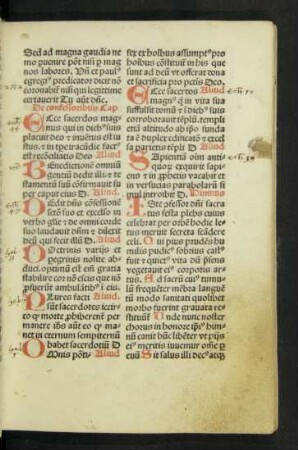 Sed ad magna gaudia ne
mo peruenire pōt nisi p mag
nos labores. Vn̄ et paul⁹
egregi⁹ predicator dicit nō
coronabit̄ nisi qui legittime
certauerit Tu aut̄ dn̄e.
De confessoribus Cap
Ecce sacerdos mag
nus qui in dieb⁹ suis
placuit deo ⁊ inuēt⁹ est ius
tus. et in tpe iracūdie fact⁹
est recōciliatio Deo Aliud
Benedictionē omniū
gentiū dedit illi. ⁊ te
stamentū suū cōfirmauit su
per caput eius D. Aliud.
Dedit dn̄s cōfessionē
sctō suo. et excelso in
verbo glīe ⁊ de omni corde
suo laudauit dn̄m ⁊ dilexit
deū qui fecit illū D. Aliud
Doctrinis varijs et
peregrinis nolite ab
duci. optimū est enī gratia
stabilire cor nō escis que nō
pfuerūt ambulātib⁹ ī eis.
Plures facti Aliud.
sūt sacerdotes iccir
co q morte phiberent̄ per
manere ihs aūt eo q ma
net in eternum sempiternū
habet sacerdotiū D
Omnis pōti Aliud
fex ex hoibus assumpt⁹ pro
hoibus cōstituit̄ in his que
sunt ad deū vt offerat dona
et sacrificia pro pctis Deo.
Ecce sacerdos Aliud
magn⁹ q in vita sua
suffulsit domū ⁊ ī dieb⁹ suis
corroborauit tēplū. templi
etiā altitudo ab ip̄o funda
ta ē duplex edificatō ⁊ excel
si parietes tēpli D Aliud
Sapientiā oim anti
quoꝝ exquiret sapi
ens ⁊ in pphetis vacabit et
in versucias parabolaꝝ si
mul introibit D. Himnus
Iste cōfessor dn̄i sacra
tus festa plebs cuius
celebrat per orbē hodie letus
meruit secreta scādere
celi. Qui pius prudēs hu
milis pudic⁹ sobrius cast⁹
fuit ⁊ quiet⁹ vita dū p̄sens
vegetauit ei⁹ corporis ar
tus. Ad sacrū cui⁹ tumu
lū frequēter mēbra languē
tū modo sanitati quolibet
morbo fuerint grauata re
stituūt̄ Unde nunc noster
chorus in honorē ip̄i⁹ him
nū canit hūc libēter vt pijs
ei⁹ meritis iuuemur ome p
euū Sit salus illi dec⁹ atq